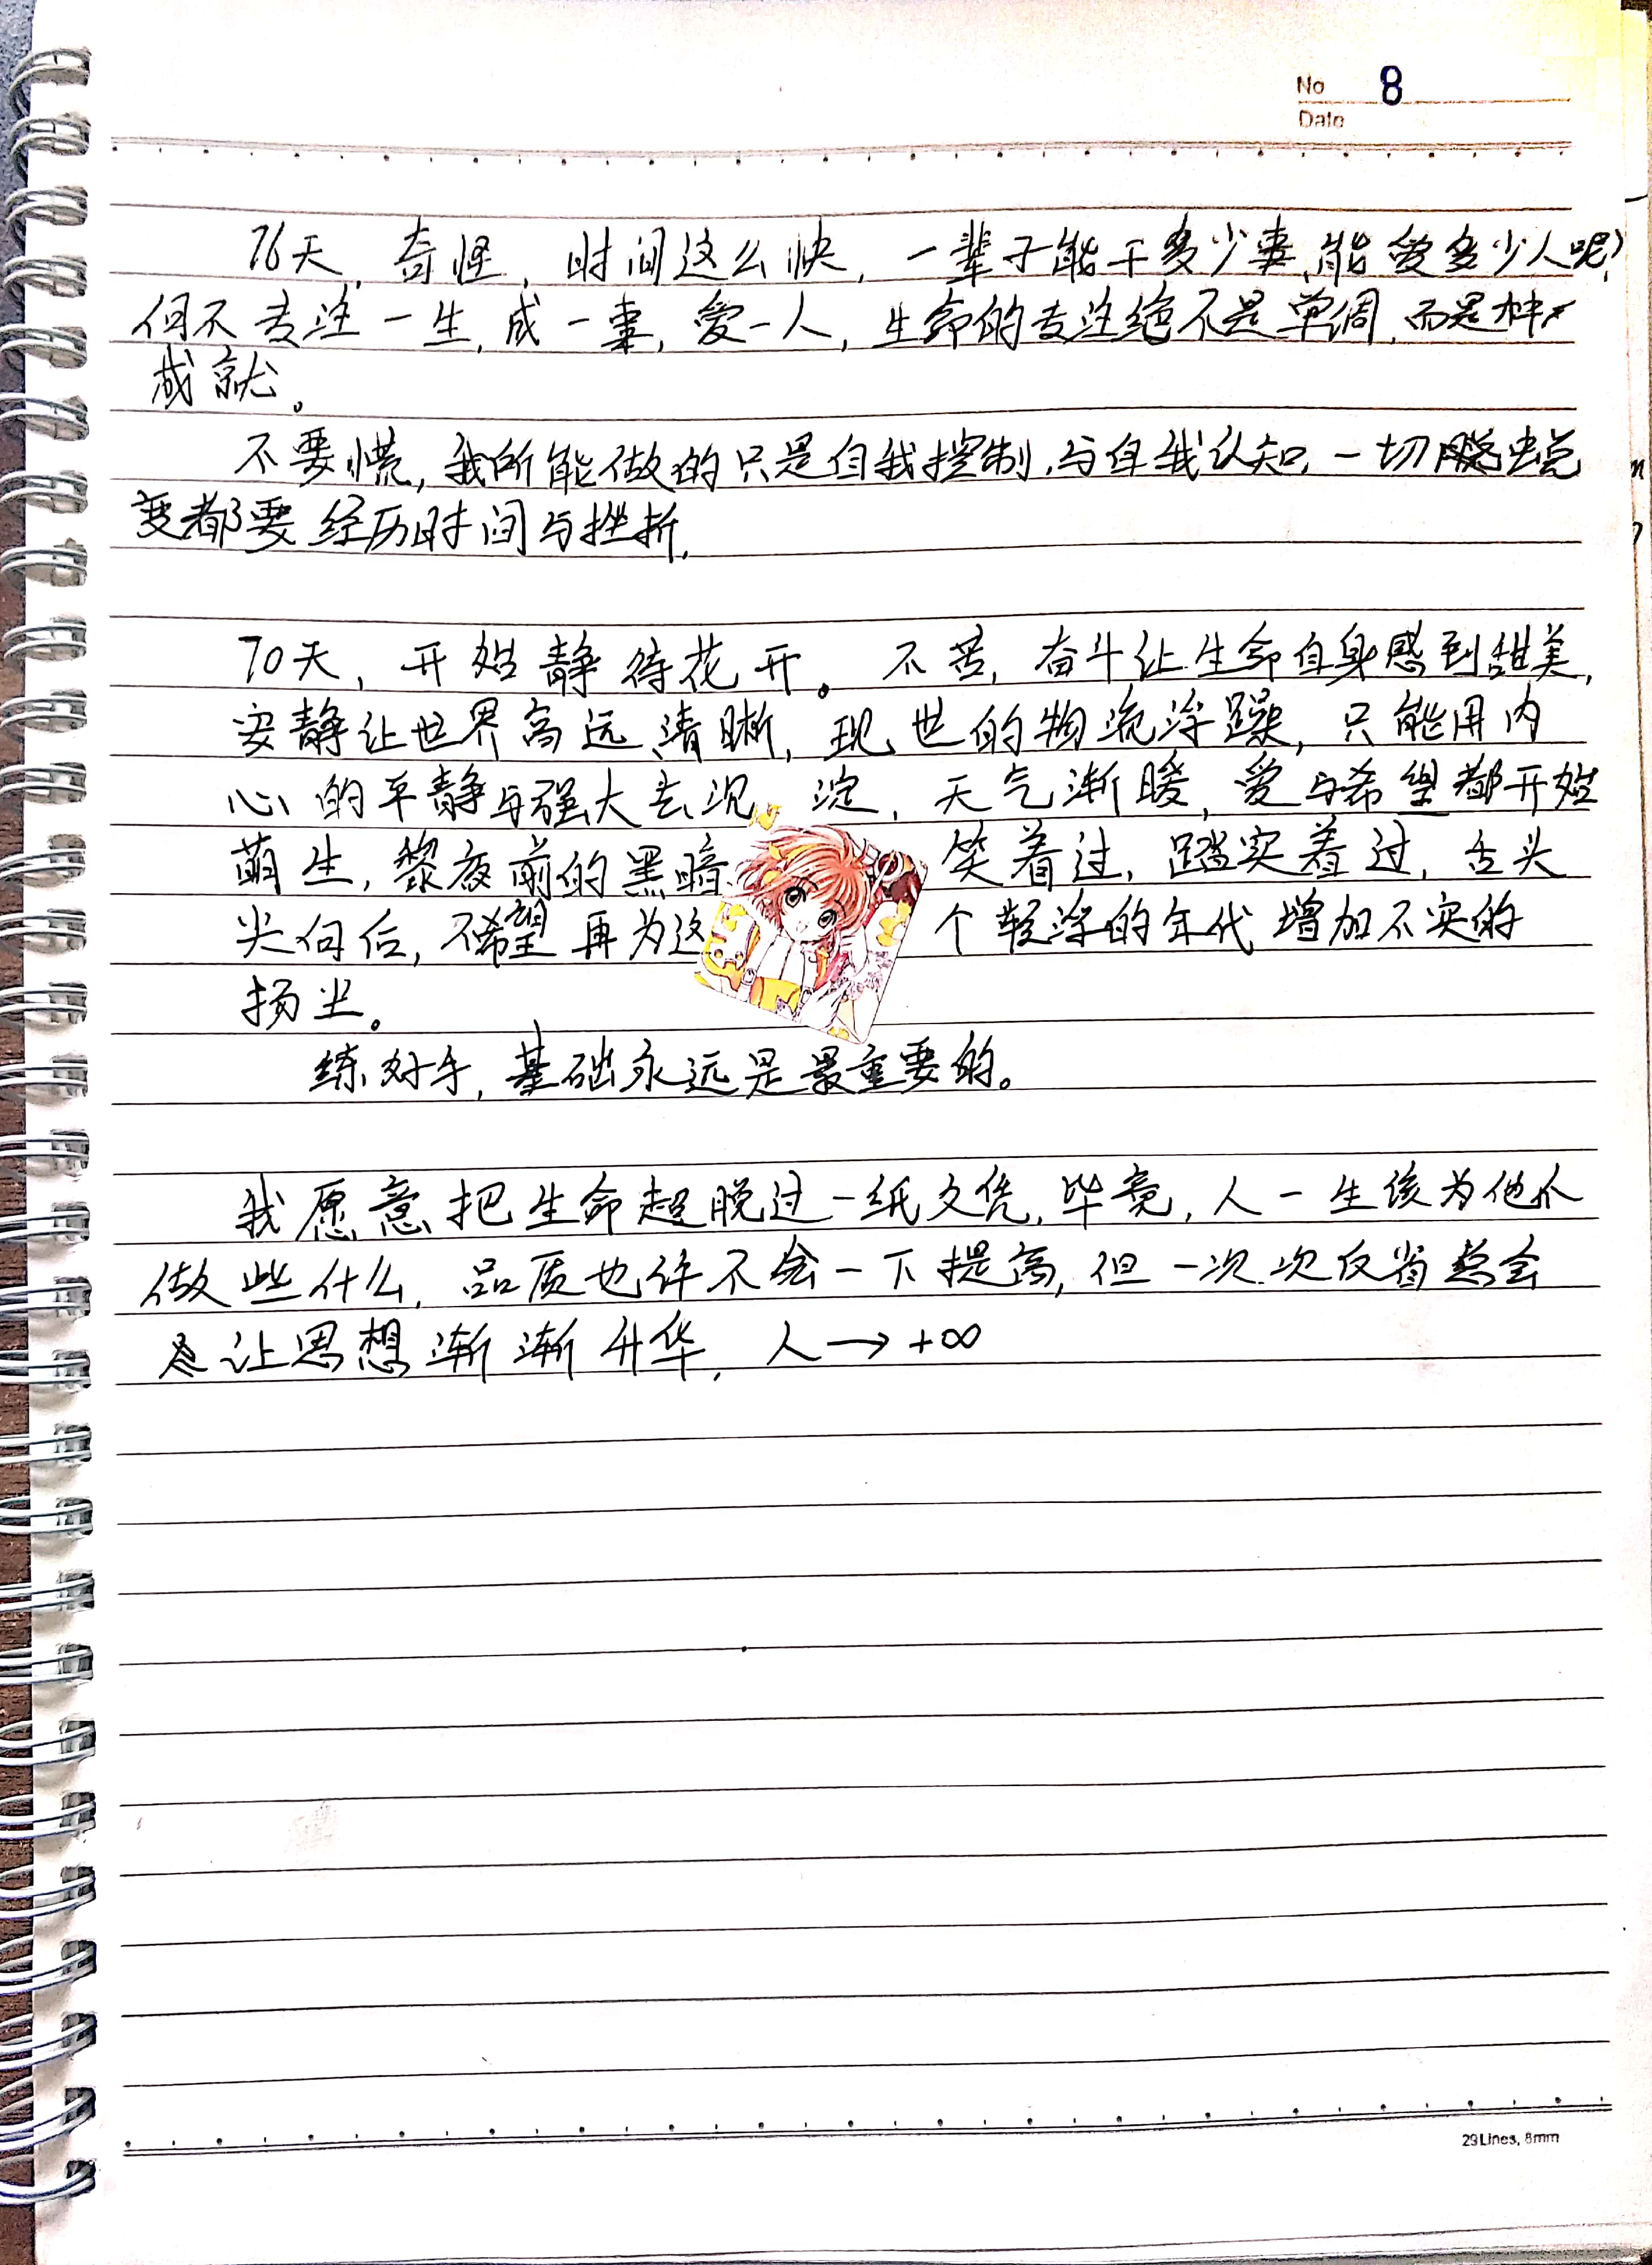 No 8
Date
76天，奇怪，时间这么快，一辈子能干多少事，能爱多少人呢？
何不专注一生，成一事，爱一人，生命的专注绝不是单调，而是种
成就。
不要慌，我所能做的只是自我控制，与自我认知，一切蜕
变都要经历时间与挫折，
70天，开始静待花开。不苦，奋斗让生命自身感到甜美，
安静让世界高远、清晰，现世的物流浮躁，只能用内
心的平静与强大去沉淀，天气渐暖，爱与希望都开始
萌生，黎夜前的黑暗，笑着过，踏实着过，舌头
尖向后，不希望再为这个轻浮的年代增加不实的
扬尘。
练好手，基础永远是最重要的。
我愿意把生命超脱过一纸文凭，毕竟，人一生该为他人
做些什么，品质也许不会一下提高，但一次次反省总会
让思想渐渐升华，人→+∞
29Lines, 8mm